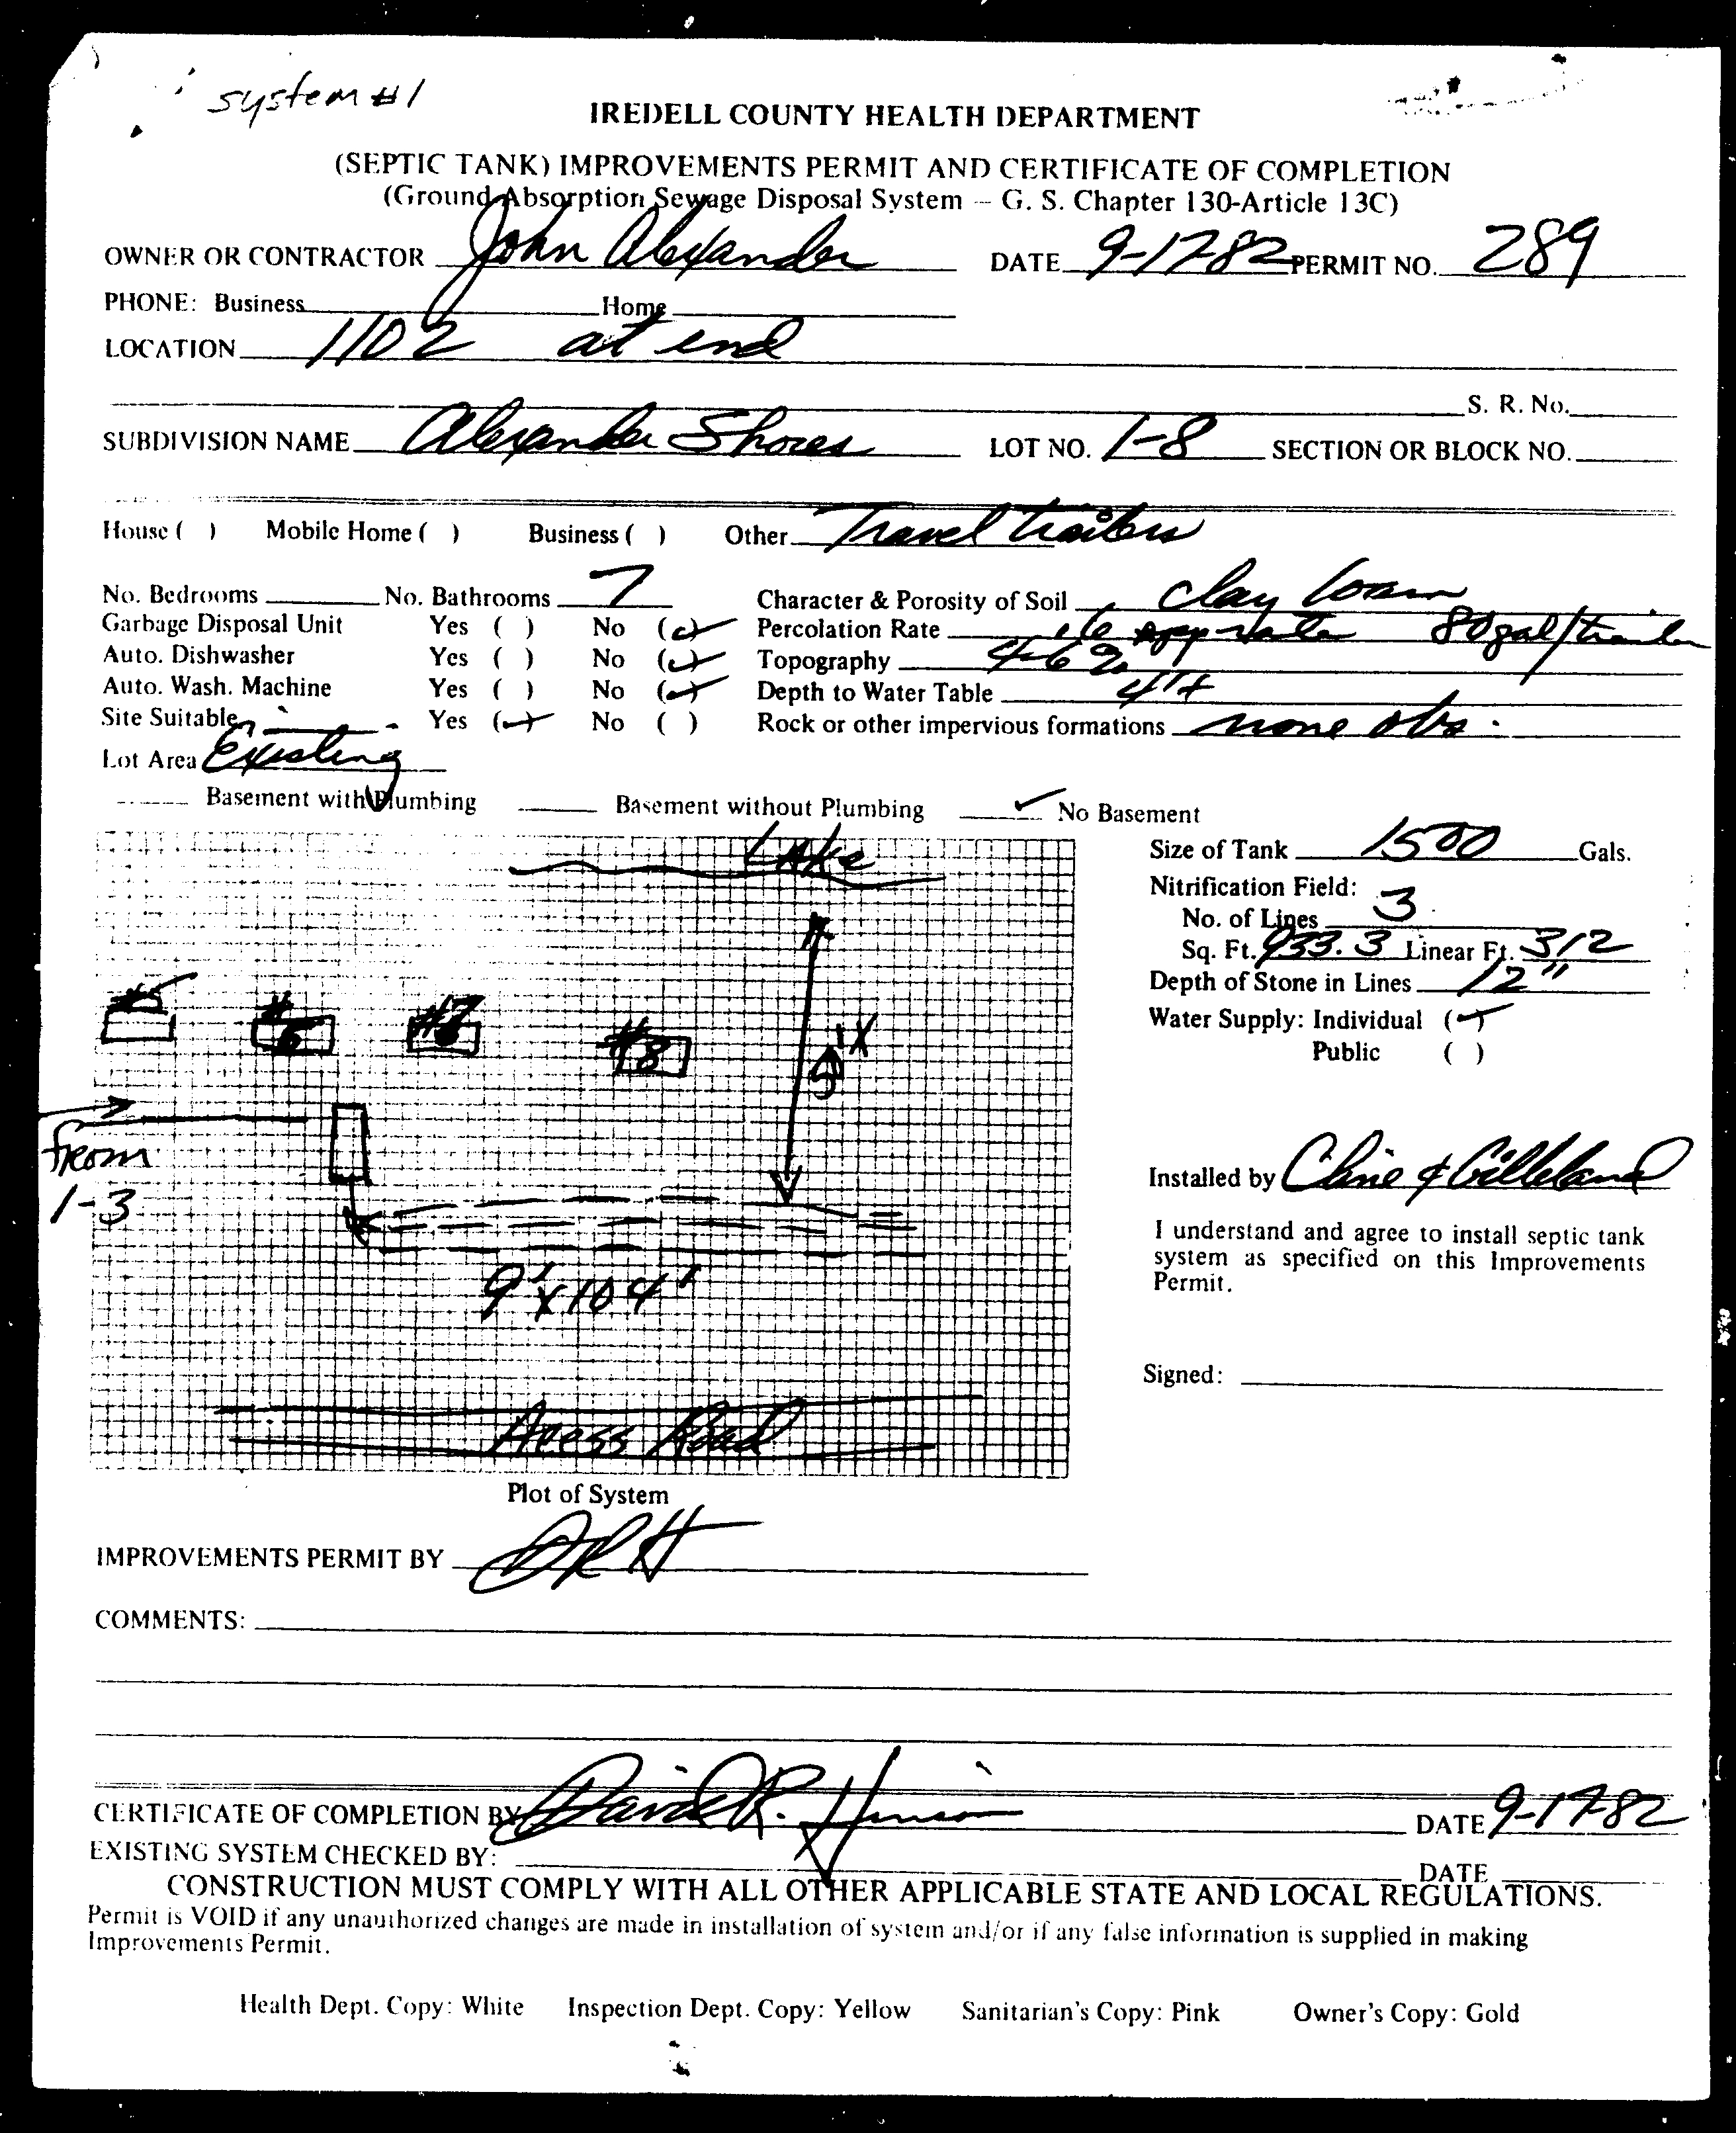 system #1
IREDELL COUNTY HEALTH DEPARTMENT
(SEPTIC TANK) IMPROVEMENTS PERMIT AND CERTIFICATE OF COMPLETION
(Ground Absorption Sewage Disposal System — G. S. Chapter 130-Article 13C)
OWNER OR CONTRACTOR John Alexander DATE 9-17-82 PERMIT NO. 289
PHONE: Business Home
LOCATION 1102 at end
S. R. No.
SUBDIVISION NAME Alexander Shores LOT NO. 1-8 SECTION OR BLOCK NO.
House ( ) Mobile Home ( ) Business ( ) Other Travel trailers
No. Bedrooms No. Bathrooms 7 Character & Porosity of Soil clay loam
Garbage Disposal Unit Yes ( ) No (✓) Percolation Rate .6 app rate 80 gal/trailer
Auto. Dishwasher Yes ( ) No (✓) Topography 4-6%
Auto. Wash. Machine Yes ( ) No (✓) Depth to Water Table 4'+
Site Suitable Yes (✓) No ( ) Rock or other impervious formations none obs.
Lot Area Existing
Basement with Plumbing Basement without Plumbing ✓ No Basement
Lake
Size of Tank 1500 Gals.
Nitrification Field:
No. of Lines 3
Sq. Ft. 933.3 Linear Ft. 312
Depth of Stone in Lines 12"
Water Supply: Individual (✓)
Public ( )
#5 #6 #7 #8
from
1-3
9'x104'
Acess Road
Installed by Cline & Gilleland
I understand and agree to install septic tank
system as specified on this Improvements
Permit.
Signed:
Plot of System
IMPROVEMENTS PERMIT BY DRH
COMMENTS:
CERTIFICATE OF COMPLETION BY David R. Hinson DATE 9-17-82
EXISTING SYSTEM CHECKED BY: DATE
CONSTRUCTION MUST COMPLY WITH ALL OTHER APPLICABLE STATE AND LOCAL REGULATIONS.
Permit is VOID if any unauthorized changes are made in installation of system and/or if any false information is supplied in making
Improvements Permit.
Health Dept. Copy: White Inspection Dept. Copy: Yellow Sanitarian's Copy: Pink Owner's Copy: Gold